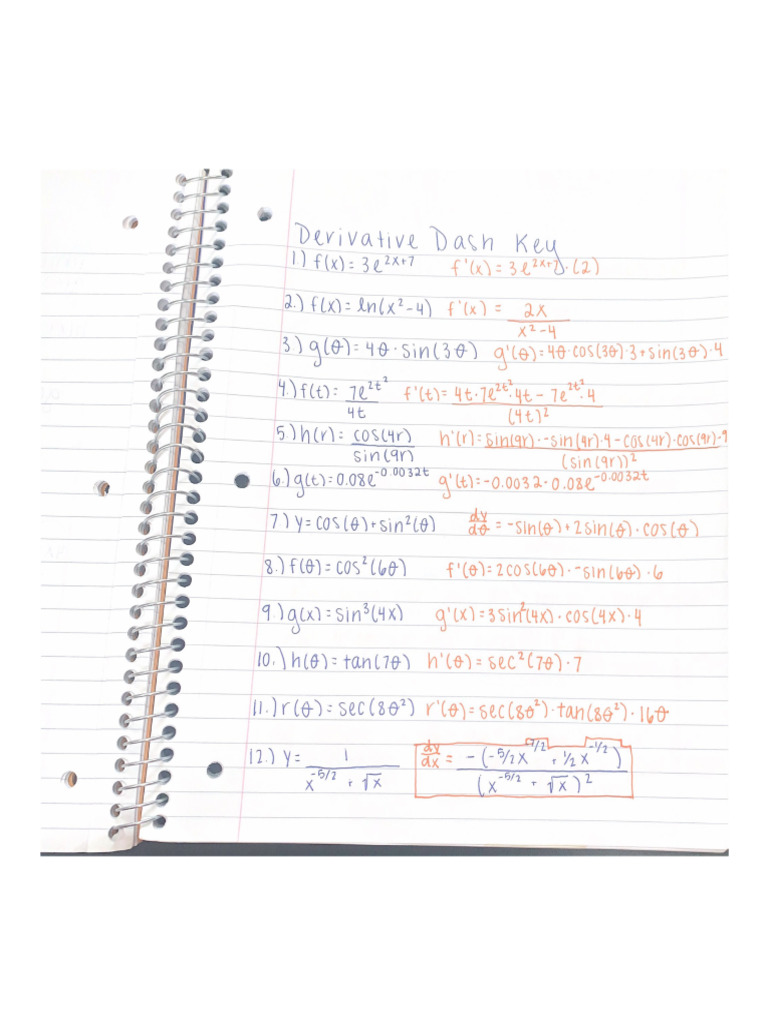 Derivative Dash Key
1) f(x) = 3e^(2x+7) f'(x) = 3e^(2x+7)·(2)
2.) f(x) = ln(x²-4) f'(x) = 2x/(x²-4)
3.) g(θ) = 4θ·sin(3θ) g'(θ) = 4θ·cos(3θ)·3+sin(3θ)·4
4.) f(t) = 7e^(2t²)/4t f'(t) = (4t·7e^(2t²)·4t - 7e^(2t²)·4)/(4t)²
5.) h(r) = cos(4r)/sin(9r) h'(r) = (sin(9r)·-sin(4r)·4-cos(4r)·cos(9r)·9)/(sin(9r))²
6.) g(t) = 0.08e^(-0.0032t) g'(t) = -0.0032·0.08e^(-0.0032t)
7.) y = cos(θ)+sin²(θ) dy/dθ = -sin(θ)+2sin(θ)·cos(θ)
8.) f(θ) = cos²(6θ) f'(θ) = 2cos(6θ)·-sin(6θ)·6
9.) g(x) = sin³(4x) g'(x) = 3sin²(4x)·cos(4x)·4
10.) h(θ) = tan(7θ) h'(θ) = sec²(7θ)·7
11.) r(θ) = sec(8θ²) r'(θ) = sec(8θ²)·tan(8θ²)·16θ
12.) y = 1/(x^(-5/2) + √x) dy/dx = -(-5/2x^(-7/2) + 1/2x^(-1/2))/(x^(-5/2) + √x)²